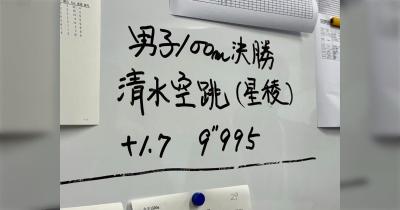 男子100m決勝
清水空跳(星稜)
+1.7 9"995
29